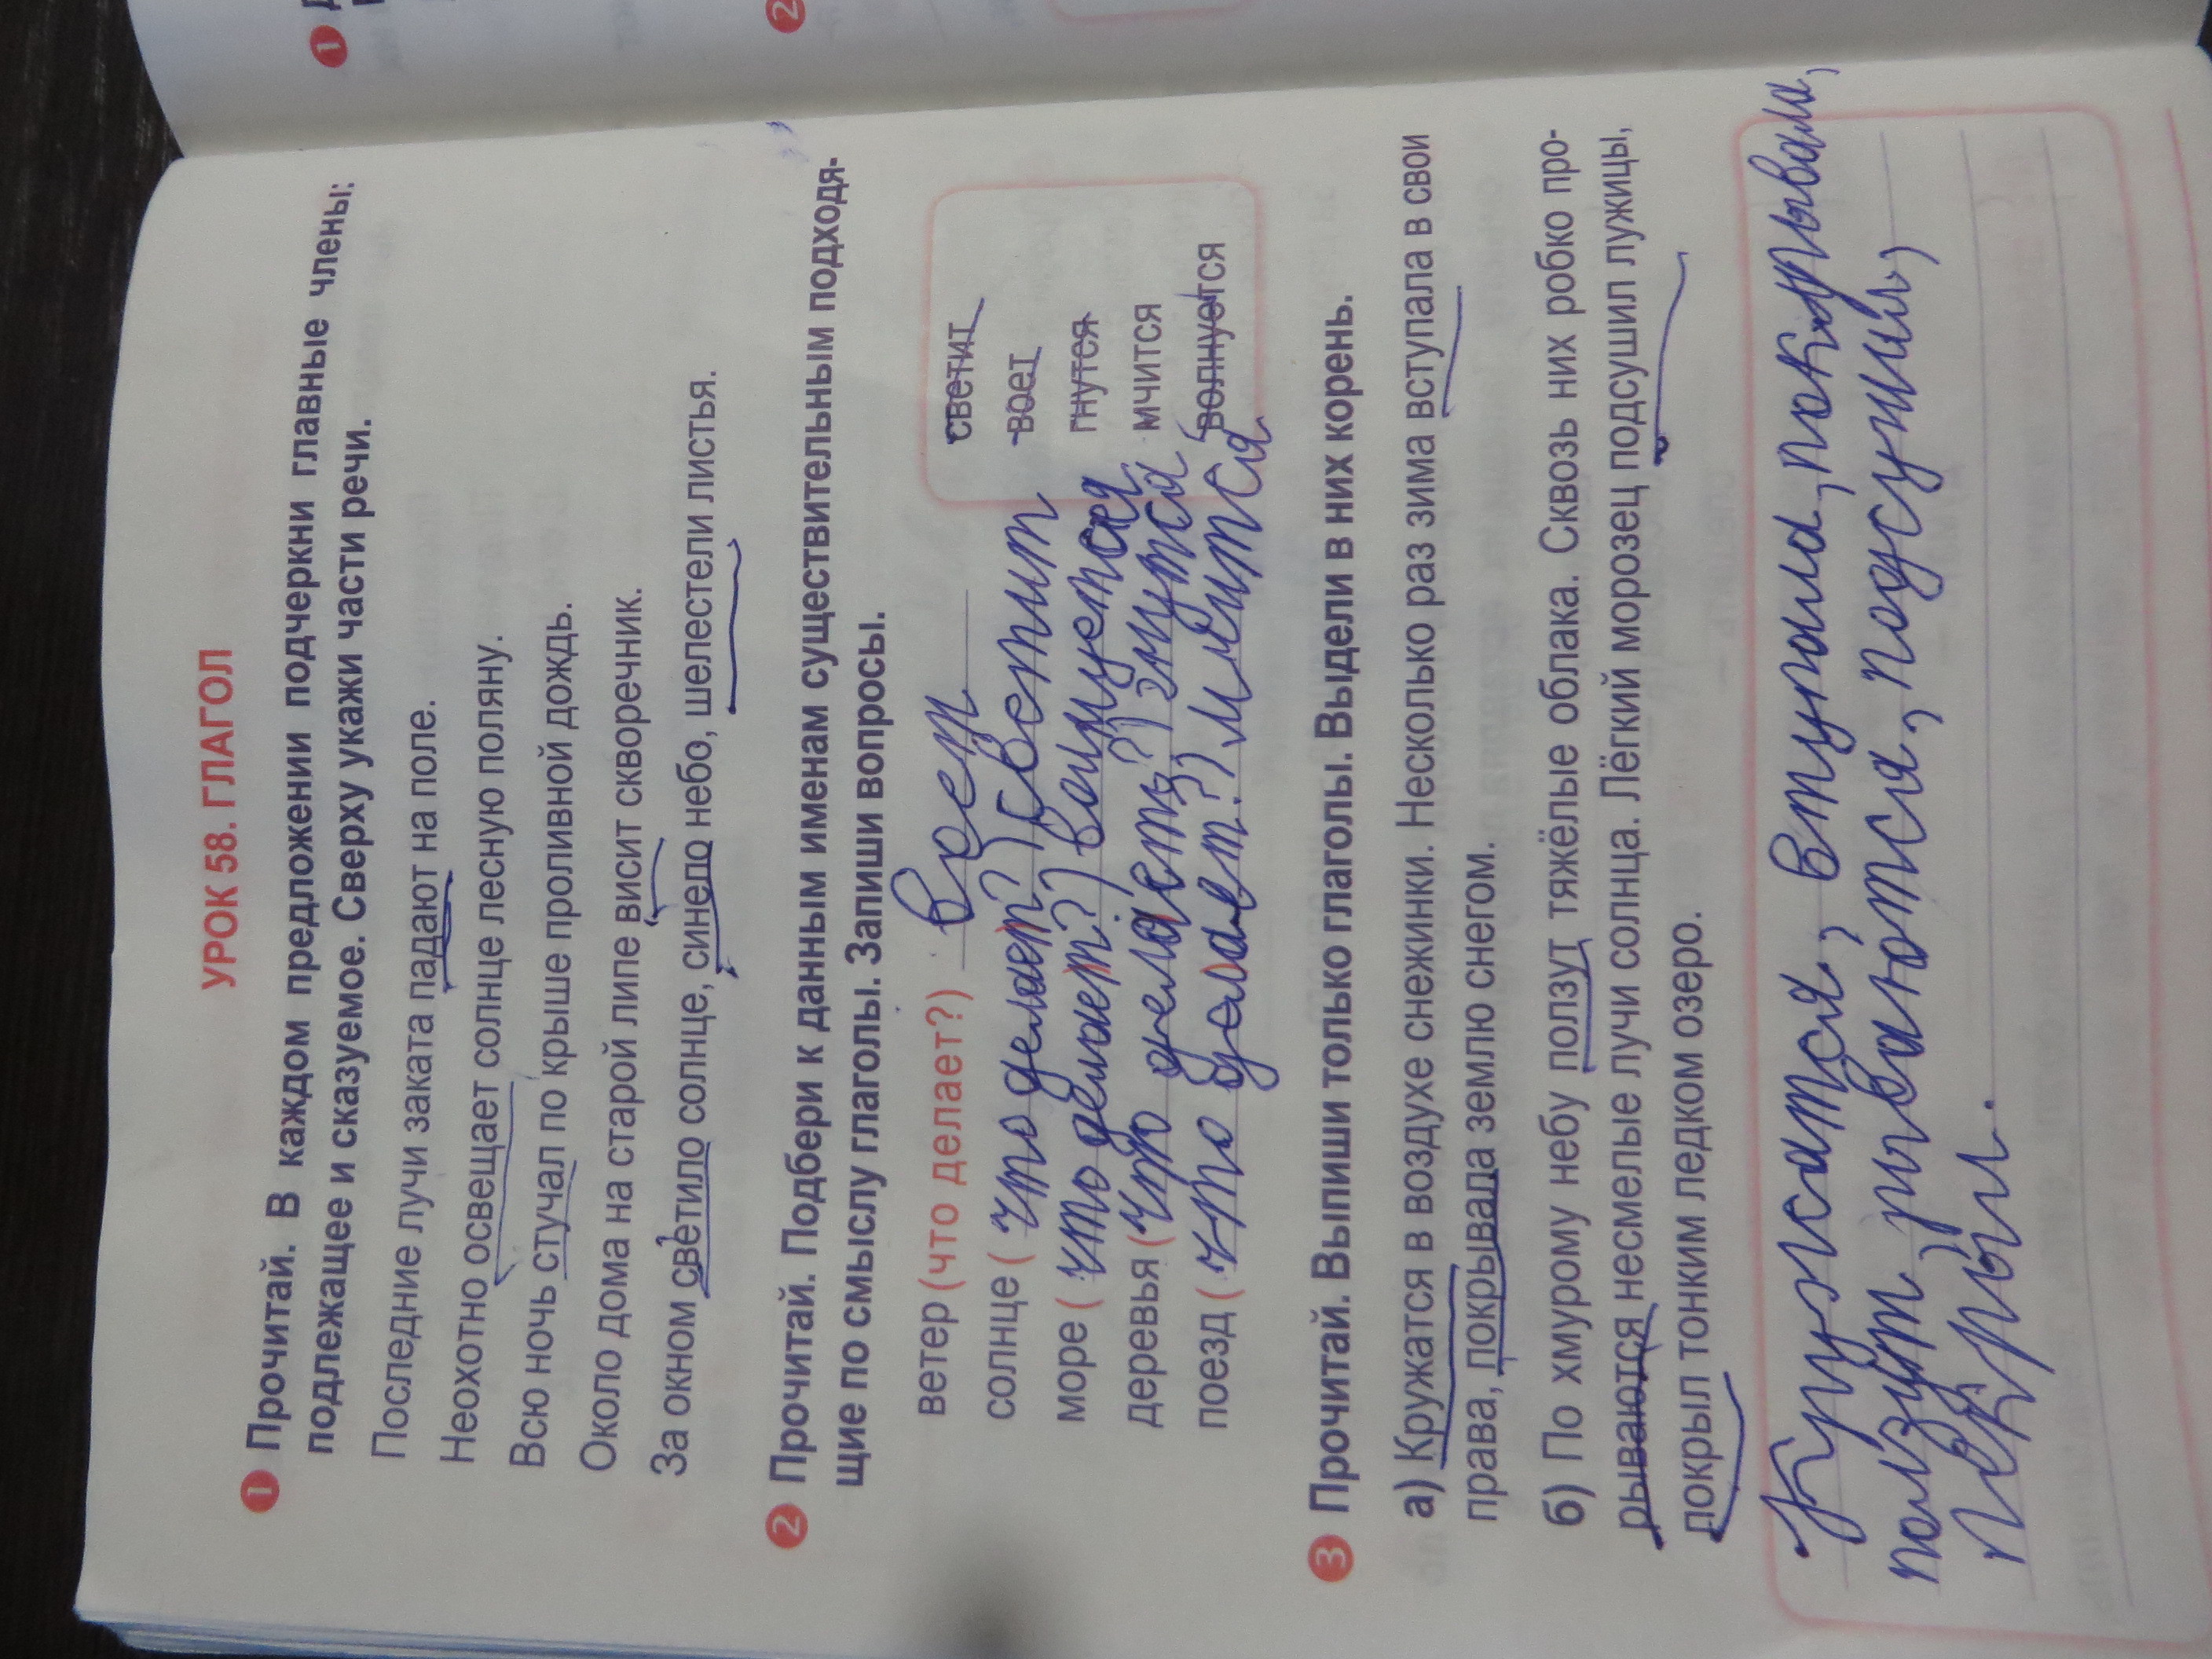 УРОК 58. ГЛАГОЛ
1 Прочитай. В каждом предложении подчеркни главные члены:
подлежащее и сказуемое. Сверху укажи части речи.
Последние лучи заката падают на поле.
Неохотно освещает солнце лесную поляну.
Всю ночь стучал по крыше проливной дождь.
Около дома на старой липе висит скворечник.
За окном светило солнце, синело небо, шелестели листья.
2 Прочитай. Подбери к данным именам существительным подходя-
щие по смыслу глаголы. Запиши вопросы.
ветер (что делает?) воет
солнце (что делает?) светит
море (что делает?) волнуется
деревья (что делает?) гнутся
поезд (что делает?) мчится
светит
воет
гнутся
мчится
волнуется
3 Прочитай. Выпиши только глаголы. Выдели в них корень.
а) Кружатся в воздухе снежинки. Несколько раз зима вступала в свои
права, покрывала землю снегом.
б) По хмурому небу ползут тяжёлые облака. Сквозь них робко про-
рываются несмелые лучи солнца. Лёгкий морозец подсушил лужицы,
покрыл тонким ледком озеро.
Кружатся, втупала, покрывала,
ползут, рываются, подсушил,
1
2